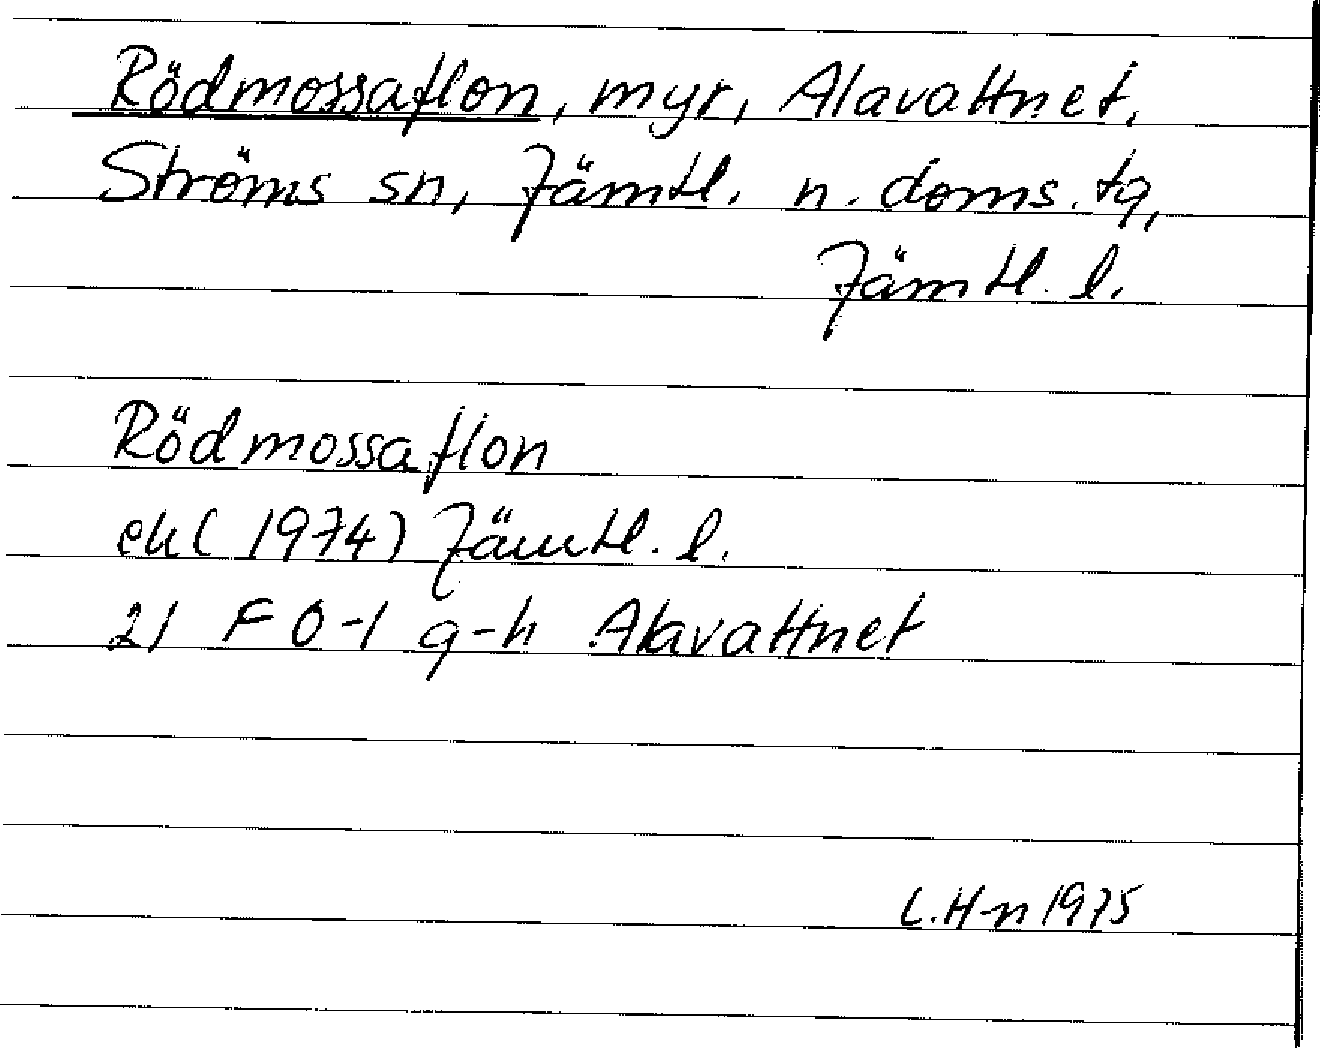 Rödmossaflon, myr, Alavattnet,
Ströms sn, Jämtl. n. doms. tg,
Jämtl. l.
Rödmossaflon
ek (1974) Jämtl. l.
21 F 0-1 g-h Alavattnet
L.H-n 1975